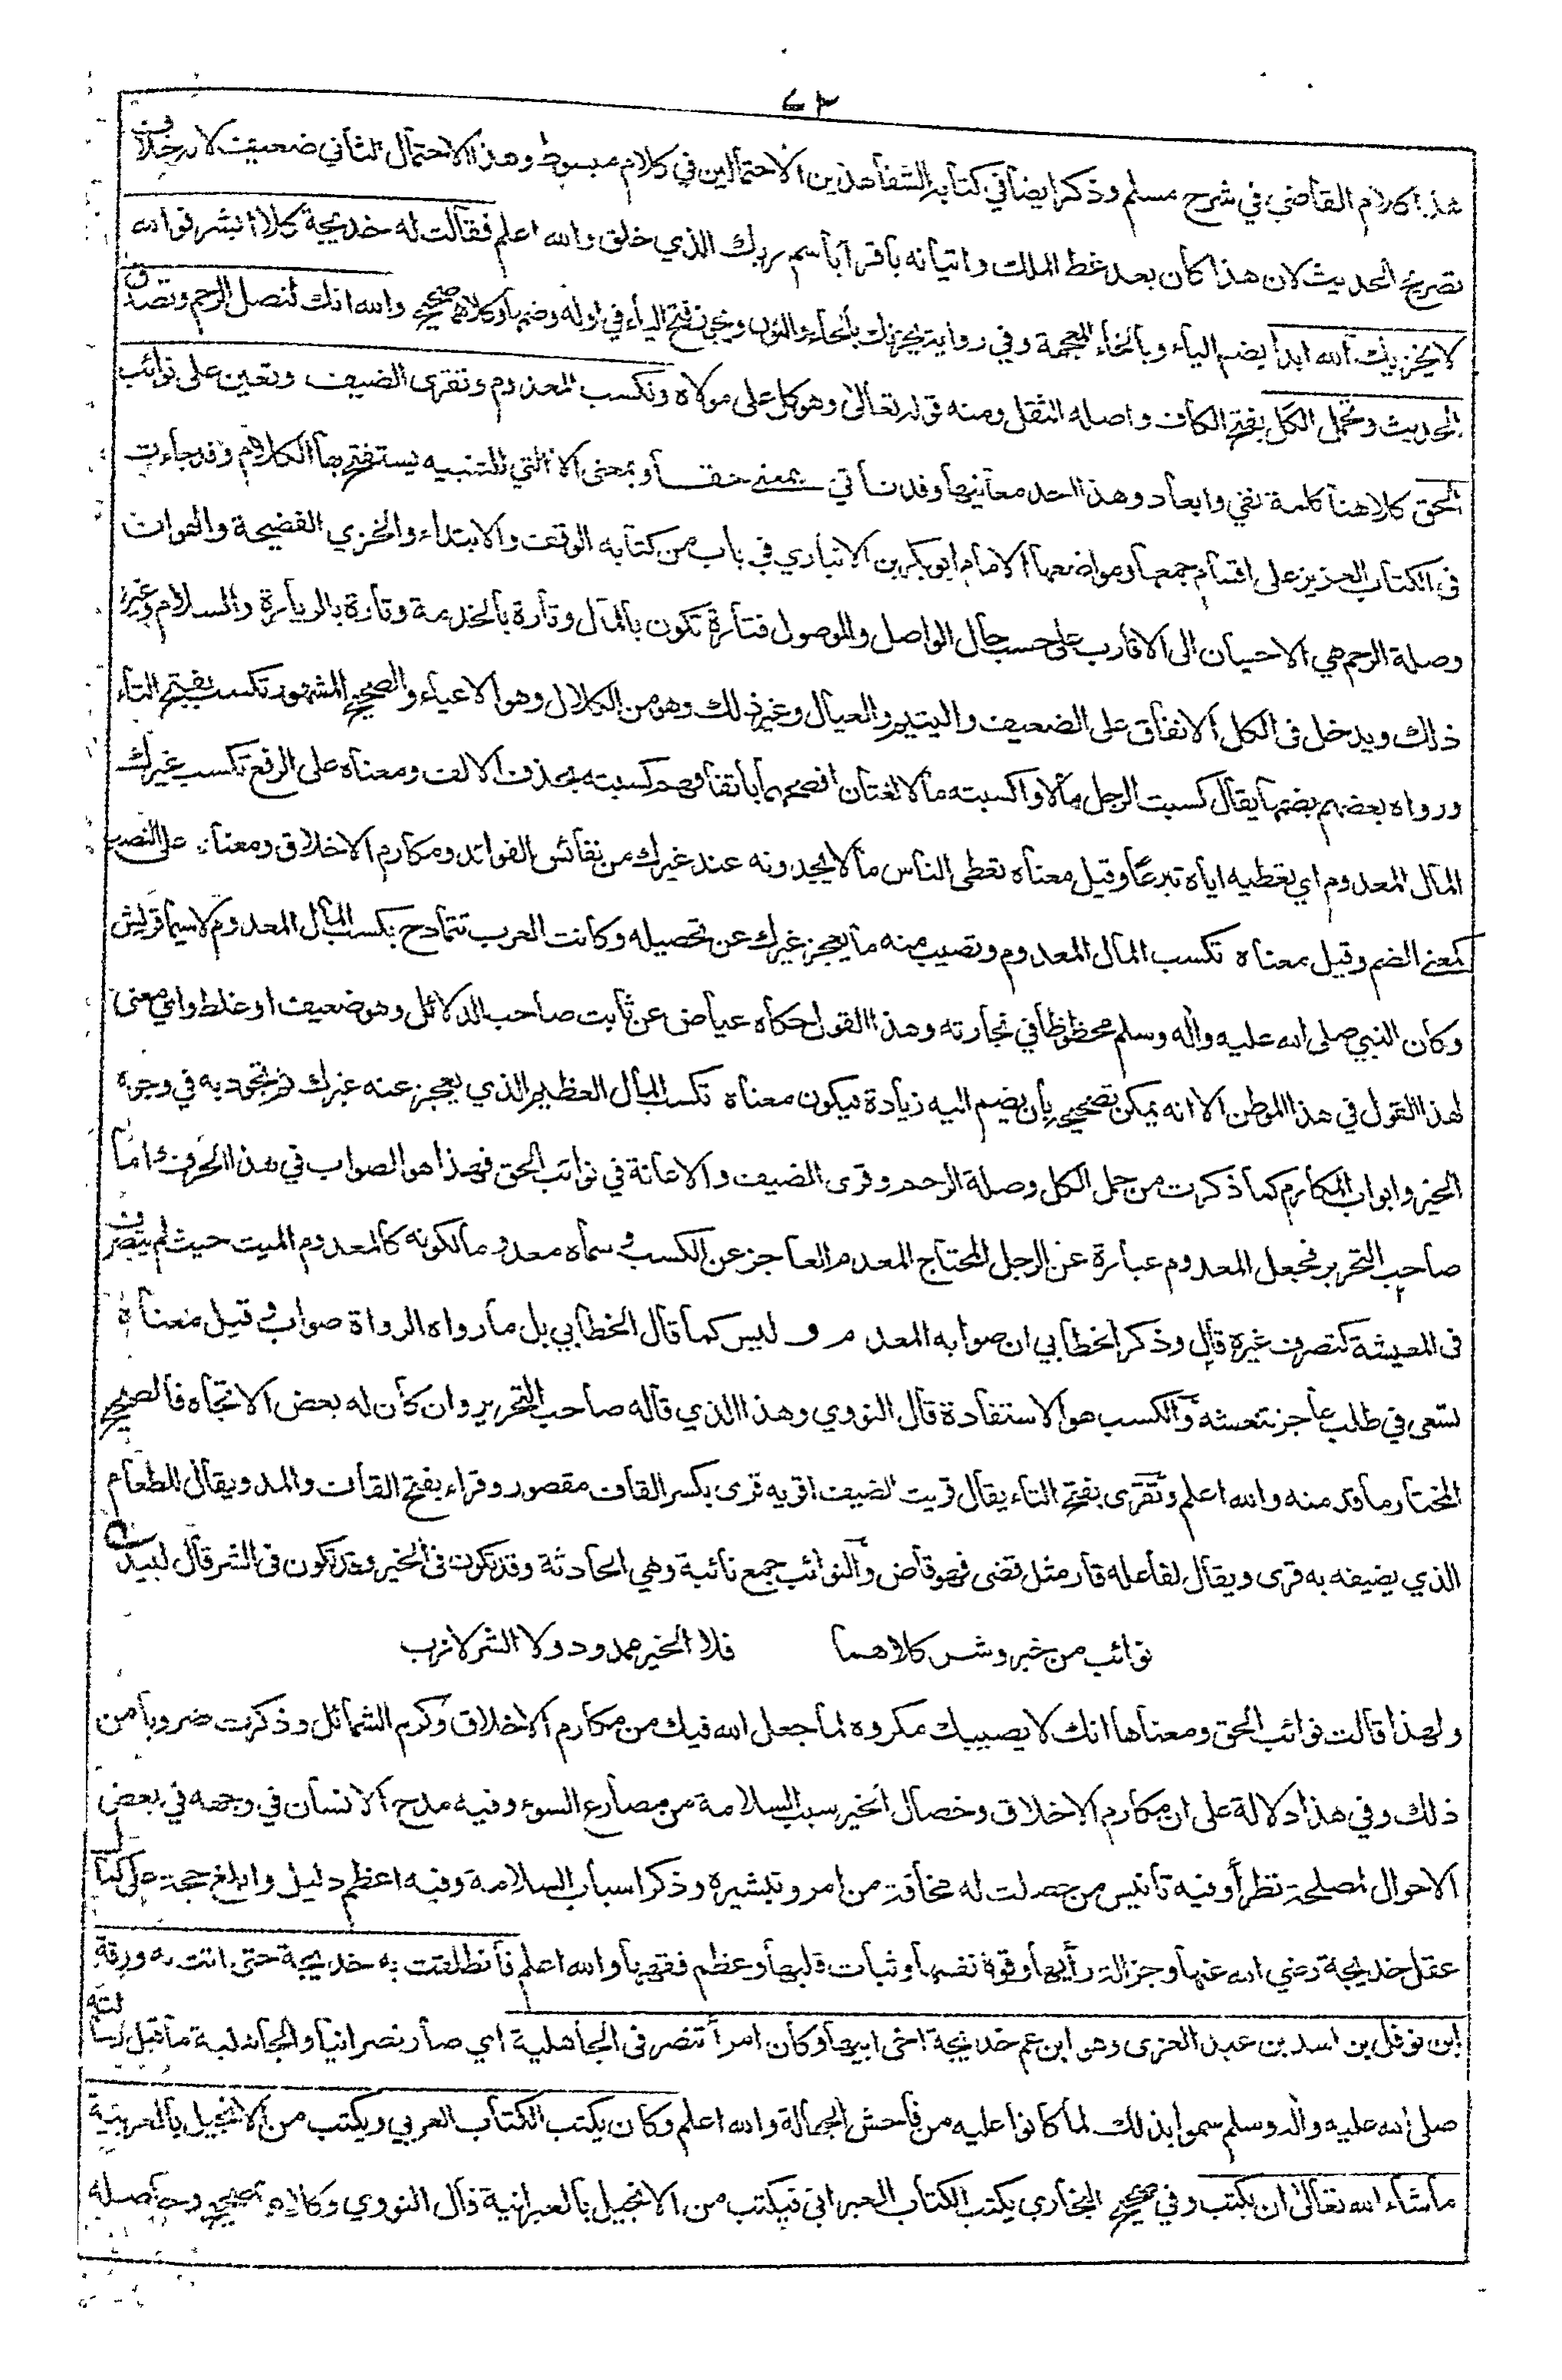 ٤٣
هذا كلام القاضي في شرح مسلم وذكر ايضا في كتابه الشفا هذين الاحتمالين في كلام مبسوط وهذا الاحتمال الثاني ضعيف لانه خلاف
تصريح الحديث لان هذا كان بعد غط الملك واتيانه باقرأ باسم ربك الذي خلق والله اعلم فقالت له خديجة كلا ابشر فوالله
لا يخزيك الله ابدا بضم الياء وبالخاء المعجمة وفي رواية يحزنك بالحاء والنون ويجوز فتح الياء في اوله وضمها وكلاهما صحيح والله انك لتصل الرحم وتصدق
الحديث وتحمل الكل بفتح الكاف واصله الثقل ومنه قوله تعالى وهو كل على مولاه وتكسب المعدوم وتقرى الضيف وتعين على نوائب
الحق كلا هنا كلمة نفي وابعاد وهذا احد معانيها وقد تأتي بمعنى حقا وبمعنى الا التي للتنبيه يستفتح بها الكلام وقد جاءت
فى الكتاب العزيز على اقسام جمعها ومواضعها الامام ابو بكر بن الانباري في باب من كتابه الوقف والابتداء والخزي الفضيحة والهوان
وصلة الرحم هي الاحسان الى الاقارب على حسب حال الواصل والموصول فتارة تكون بالمال وتارة بالخدمة وتارة بالزيارة والسلام وغير
ذلك ويدخل فى الكل الانفاق على الضعيف واليتيم والعيال وغير ذلك وهو من الكلال وهو الاعياء والصحيح المشهور تكسب بفتح التاء
ورواه بعضهم بضمها يقال كسبت الرجل مالا واكسبته مالا لغتان افصحهما باتفاقهم كسبته بحذف الالف ومعناه على الرفع تكسب غيرك
المال المعدوم اي تعطيه اياه تبرعا وقيل معناه تعطى الناس ما لا يجدونه عند غيرك من نفائس الفوائد ومكارم الاخلاق ومعناه على النصب
كمعنى الضم وقيل معناه تكسب المال المعدوم وتصيب منه ما يعجز غيرك عن تحصيله وكانت العرب تتمادح بكسب المال المعدوم لاسيما قريش
وكان النبي صلى الله عليه واله وسلم محظوظا في تجارته وهذا القول حكاه عياض عن ثابت صاحب الدلائل وهو ضعيف او غلط واي معنى
لهذا القول في هذا الموطن الا انه يمكن تصحيحه بان يضم اليه زيادة فيكون معناه تكسب المال العظيم الذي يعجز عنه غيرك ثم تجود به في وجوه
الخير وابواب المكارم كما ذكرت من حمل الكل وصلة الرحم وقرى الضيف والاعانة في نوائب الحق فهذا هو الصواب في هذا الحرف واما
صاحب التحرير فجعل المعدوم عبارة عن الرجل المحتاج المعدم العاجز عن الكسب وسماه معدوما لكونه كالمعدوم الميت حيث لم يتصرف
فى المعيشة كتصرف غيره قال وذكر الخطابي ان صوابه المعدم وليس كما قال الخطابي بل ما رواه الرواة صواب وقيل معناه
تسعى في طلب عاجز تعيشه والكسب هو الاستفادة قال النووي وهذا الذي قاله صاحب التحرير وان كان له بعض الاتجاه فالصحيح
المختار ما قدمنه والله اعلم وتقرى بفتح التاء يقال قريت الضيف اقريه قرى بكسر القاف مقصور وقراء بفتح القاف والمد ويقال للطعام
الذي يضيفه به قرى ويقال لفاعله قار مثل قضى فهو قاض والنوائب جمع نائبة وهي الحادثة وقد تكون فى الخير وقد تكون فى الشر قال لبيد
نوائب من خير وشر كلاهما فلا الخير ممدود ولا الشر لازب
ولهذا قالت نوائب الحق ومعناها انك لا يصيبك مكروه لما جعل الله فيك من مكارم الاخلاق وكرم الشمائل وذكرت ضروبا من
ذلك وفي هذا دلالة على ان مكارم الاخلاق وخصال الخير سبب السلامة من مصارع السوء وفيه مدح الانسان في وجهه في بعض
الاحوال لمصلحة نظرا وفيه تأنيس من حصلت له مخافة من امر وتبشيره وذكر اسباب السلامة وفيه اعظم دليل وابلغ حجة على كمال
عقل خديجة رضي الله عنها وجزالة رأيها وقوة نفسها وثبات قلبها وعظم فقهها والله اعلم فانطلقت به خديجة حتى اتت به ورقة
ابن نوفل بن اسد بن عبد العزى وهو ابن عم خديجة اخى ابيها وكان امرأ تنصر فى الجاهلية اي صار نصرانيا والجاهلية ما قبل رسالته
صلى الله عليه واله وسلم سموا بذلك لما كانوا عليه من فاحش الجهالة والله اعلم وكان يكتب الكتاب العربي ويكتب من الانجيل بالعربية
ما شاء الله تعالى ان يكتب وفي صحيح البخاري يكتب الكتاب العبرانى فيكتب من الانجيل بالعبرانية قال النووي وكلاهما صحيح وحاصله